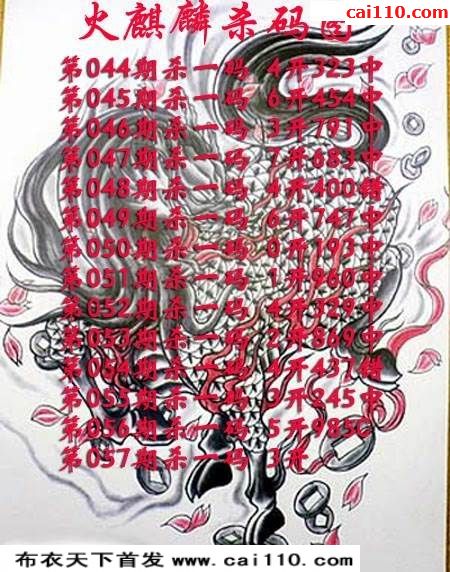 cai110.com
火麒麟杀码
第044期杀一码 4开323中
第045期杀一码 6开454中
第046期杀一码 3开791中
第047期杀一码 7开683中
第048期杀一码 4开400错
第049期杀一码 6开747中
第050期杀一码 0开193中
第051期杀一码 1开960中
第052期杀一码 4开329中
第053期杀一码 2开869中
第054期杀一码 4开437错
第055期杀一码 3开845中
第056期杀一码 5开985C
第057期杀一码 3开
布衣天下首发 www.cai110.com